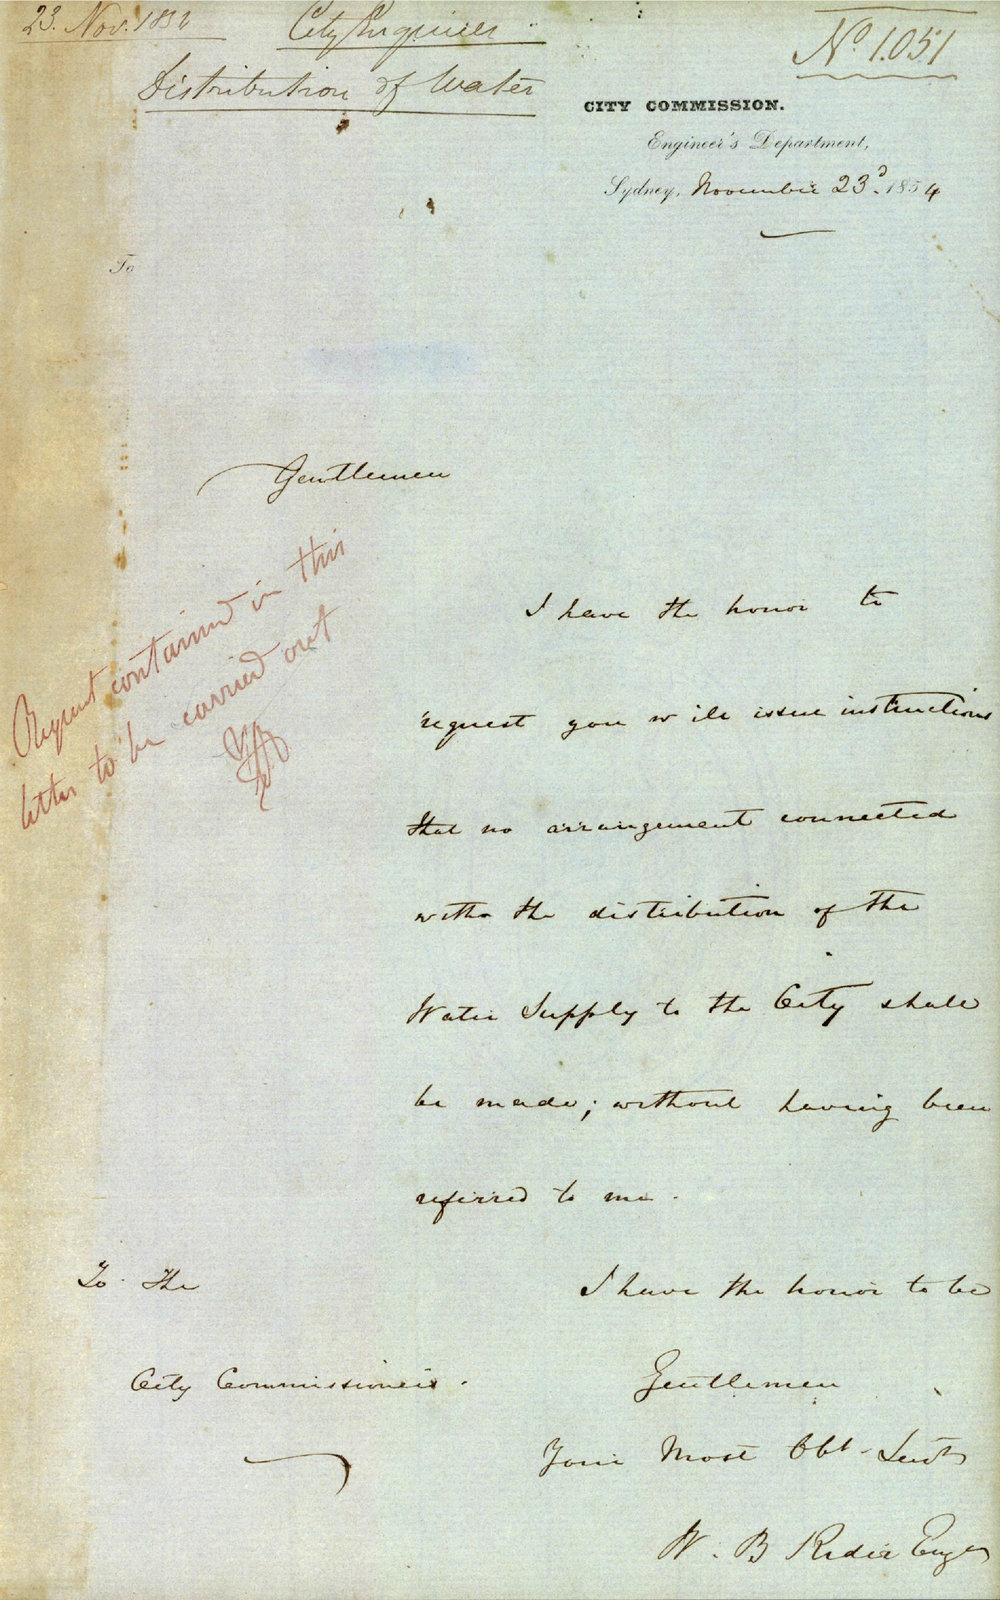 23. Nov. 1854
City Engineer
Nº 1.051
Distribution of Water
CITY COMMISSION.
Engineer's Department,
Sydney, November 23d. 1854
To
Gentlemen
Request contained in this
letter to be carried out
I have the honor to
request you will issue instructions
that no arrangement connected
with the distribution of the
Water Supply to the City shall
be made; without having been
referred to me.
To the
City Commissioners.
I have the honor to be
Gentlemen
Your Most Obt. Servt
W. B Rider Engr